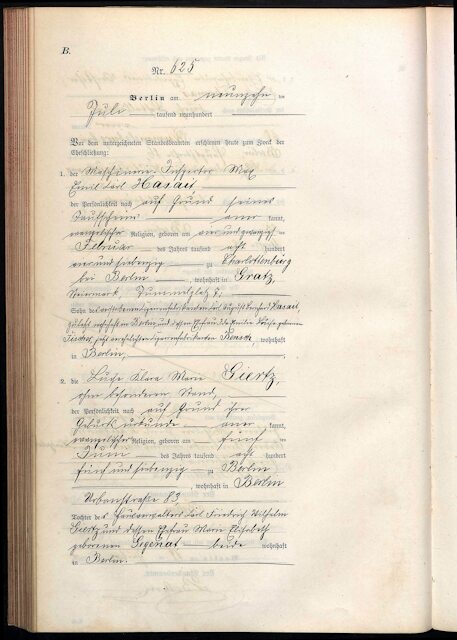 B.
Nr. 625
Berlin am neunzehn ten
Juli tausend neunhundert
Vor dem unterzeichneten Standesbeamten erschienen heute zum Zweck der
Eheschließung:
1. der Maschinerie-Inspector Max
Emil Karl Hasait,
der Persönlichkeit nach auf Grund seines
Taufscheins aner kannt,
evangelischer Religion, geboren am vier und zwanzigsten
Februar des Jahres tausend acht hundert
vier und siebenzig zu Charlottenburg
bei Berlin, wohnhaft in Gratz,
Steiermark, Tummelplatz 7,
Sohn des Hasait,
zuletzt wohnhaft in Berlin, und dessen Ehefrau geborenen
Fischer, jetzt wohnhaft
in Berlin,
2. die Luise Klara Marie Giertz,
ohne besonderen Stand,
der Persönlichkeit nach auf Grund ihrer
Geburtsurkunde aner kannt,
evangelischer Religion, geboren am fünf ten
Juni des Jahres tausend acht hundert
fünf und siebenzig zu Berlin
, wohnhaft in Berlin
Urbanstraße 83,
Tochter des Hausverwalters Karl Friedrich Wilhelm
Giertz und dessen Ehefrau Marie Elisabeth
geborenen beide wohnhaft
in Berlin.